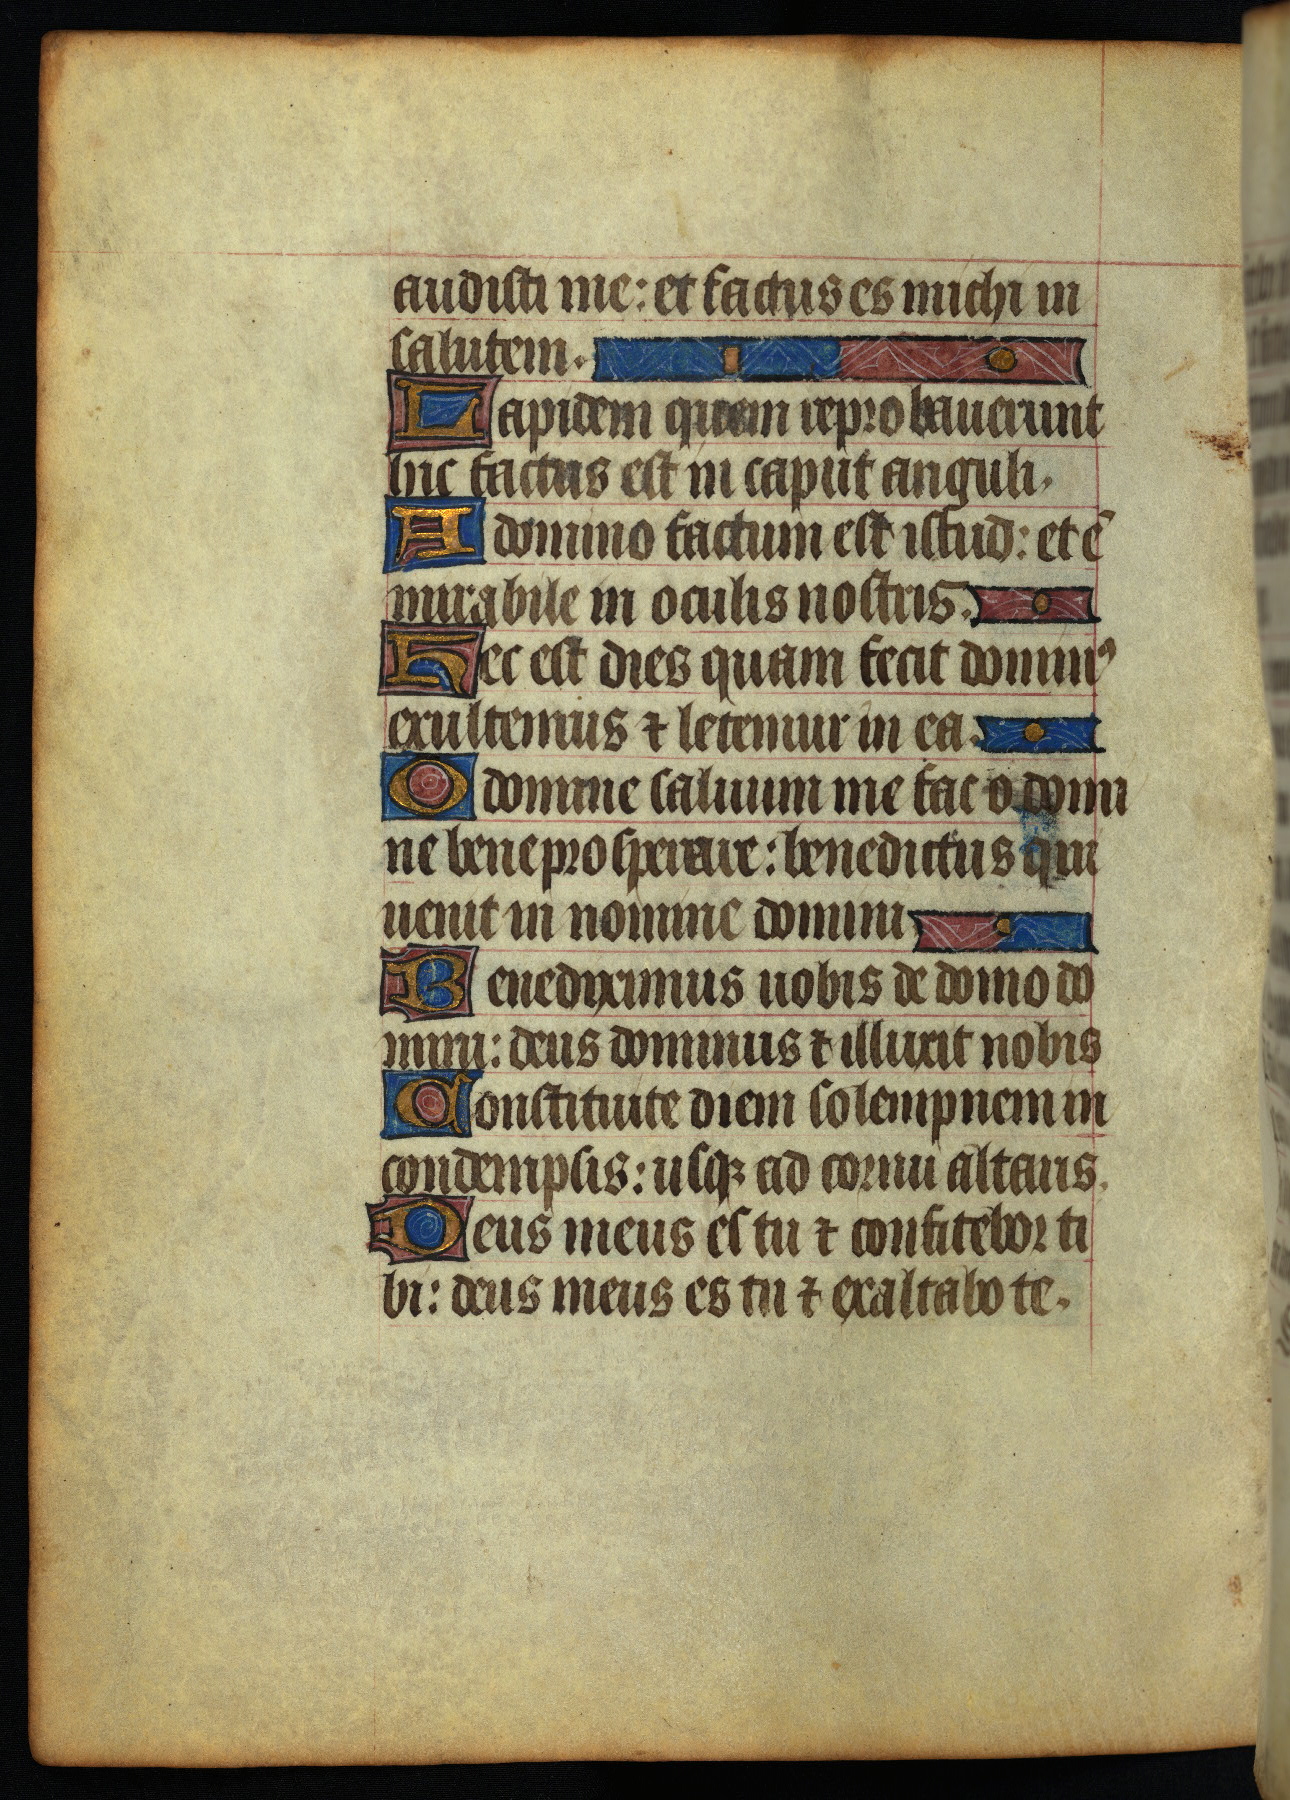 audisti me: et factus es michi in
salutem.
Lapidem quam reprobauerunt
hic factus est in caput anguli.
A domino factum est istud: et ē
mirabile in oculis nostris.
Hec est dies quam fecit dominꝰ
exultemus ⁊ letemur in ea.
O domine saluum me fac o domi
ne bene prosperare: benedictus qui
uenit in nomine domini
Benediximus uobis de domo do
mini: deus dominus ⁊ illuxit nobis
Constituite diem solempnem in
condempsis: usqꝫ ad cornu altaris.
Deus meus es tu ⁊ confitebor ti
bi: deus meus es tu ⁊ exaltabo te.